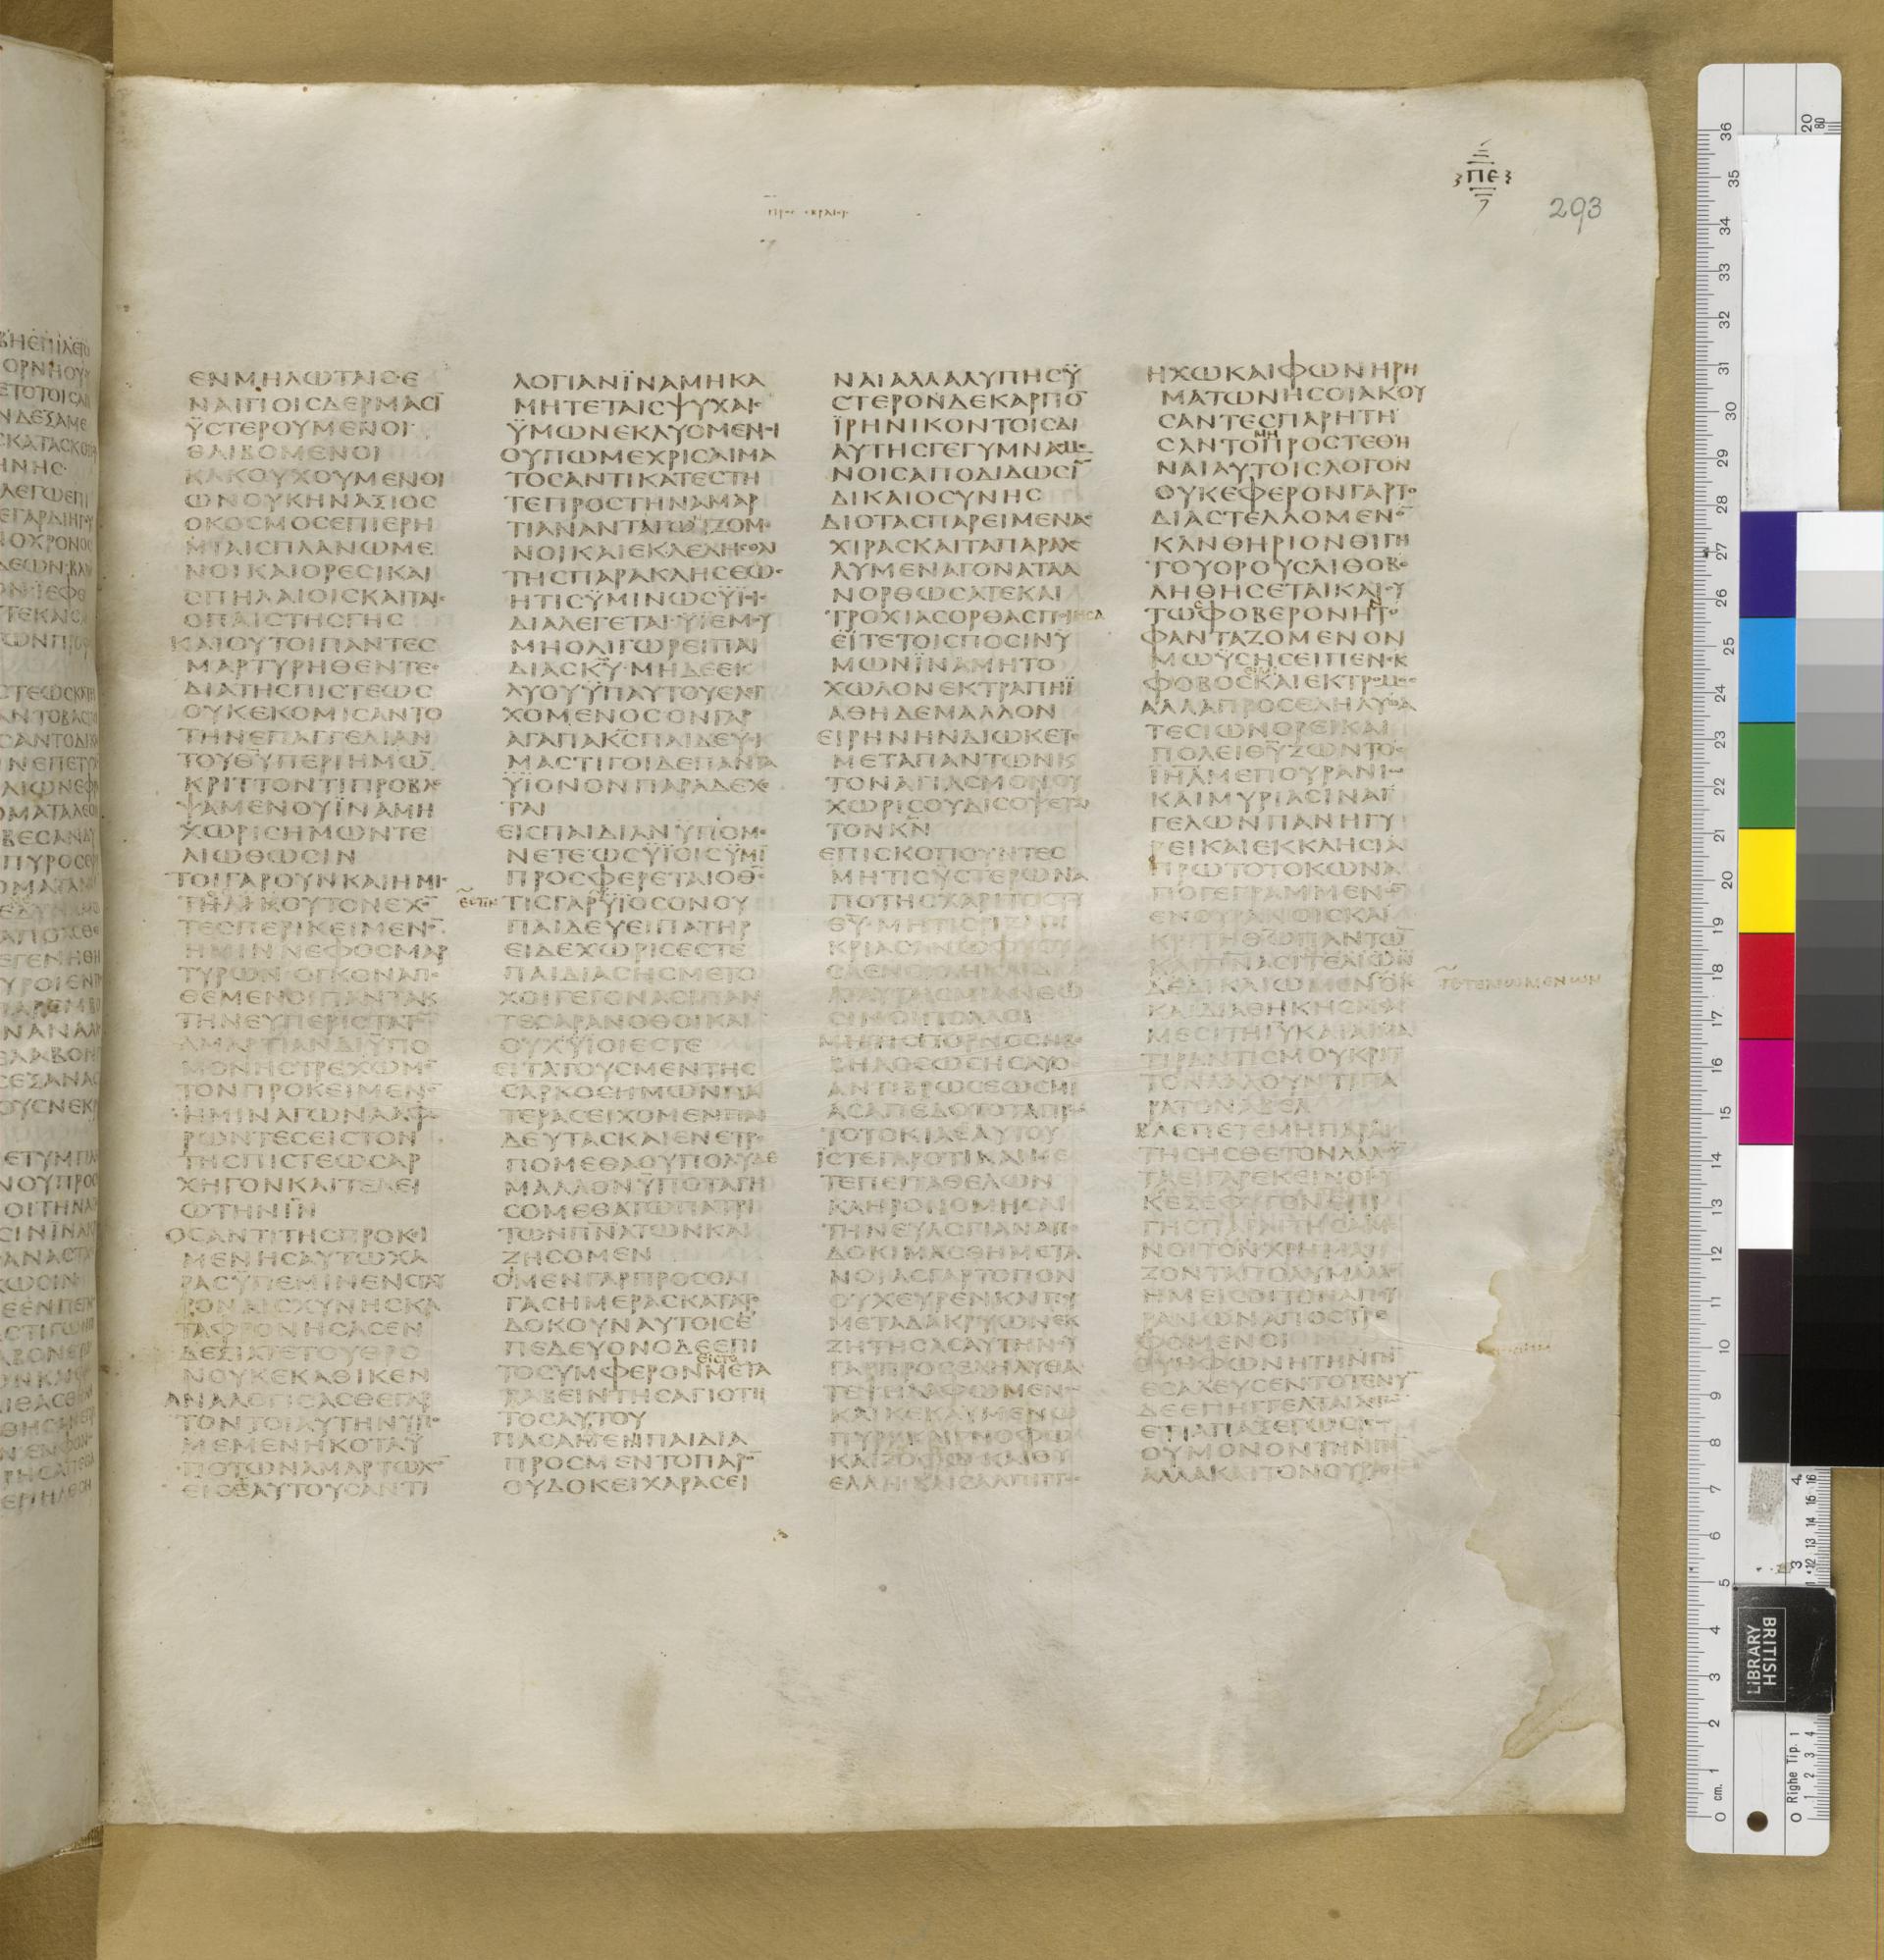 ΠΕ
293
ΠΡΟC ΕΒΡΑΙΟΥC
ΕΝΜΗΛΩΤΑΙCΕ
ΝΑΙΓΙΟΙCΔΕΡΜΑCΙ̅
ΫCΤΕΡΟΥΜΕΝΟΙ
ΘΛΙΒΟΜΕΝΟΙ
ΚΑΚΟΥΧΟΥΜΕΝΟΙ
ΩΝΟΥΚΗΝΑΞΙΟC
ΟΚΟCΜΟCΕΠΙΕΡΗ
ΜΙΑΙCΠΛΑΝΩΜΕ
ΝΟΙΚΑΙΟΡΕCΙΚΑΙ
CΠΗΛΑΙΟΙCΚΑΙΤΑΙC
ΟΠΑΙCΤΗCΓΗC
ΚΑΙΟΥΤΟΙΠΑΝΤΕC
ΜΑΡΤΥΡΗΘΕΝΤΕC
ΔΙΑΤΗCΠΙCΤΕΩC
ΟΥΚΕΚΟΜΙCΑΝΤΟ
ΤΗΝΕΠΑΓΓΕΛΙΑΝ
ΤΟΥΘ̅Υ̅ΠΕΡΙΗΜΩ̅
ΚΡΙΤΤΟΝΤΙΠΡΟΒΛΕ
ΨΑΜΕΝΟΥΪΝΑΜΗ
ΧΩΡΙCΗΜΩΝΤΕ
ΛΙΩΘΩCΙΝ
ΤΟΙΓΑΡΟΥΝΚΑΙΗΜΙC
ΤΗΛΙΚΟΥΤΟΝΕΧΟ̅
ΤΕCΠΕΡΙΚΕΙΜΕΝΟ̅
ΗΜΙΝΝΕΦΟCΜΑΡ
ΤΥΡΩΝΟΓΚΟΝΑΠΟ
ΘΕΜΕΝΟΙΠΑΝΤΑΚ
ΤΗΝΕΥΠΕΡΙCΤΑΤΟ̅
ΑΜΑΡΤΙΑΝΔΙΫΠΟ
ΜΟΝΗCΤΡΕΧΩΜΕ̅
ΤΟΝΠΡΟΚΕΙΜΕΝΟ̅
ΗΜΙΝΑΓΩΝΑΑΦΟ
ΡΩΝΤΕCΕΙCΤΟΝ
ΤΗCΠΙCΤΕΩCΑΡ
ΧΗΓΟΝΚΑΙΤΕΛΕΙ
ΩΤΗΝΙ̅Ν̅
ΟCΑΝΤΙΤΗCΠΡΟΚΙ
ΜΕΝΗCΑΥΤΩΧΑ
ΡΑCΫΠΕΜΙΝΕΝCΤΑΥ
ΡΟΝΑΙCΧΥΝΗCΚΑ
ΤΑΦΡΟΝΗCΑCΕΝ
ΔΕΞΙΑΤΕΤΟΥΘΡΟ
ΝΟΥΚΕΚΑΘΙΚΕΝ
ΑΝΑΛΟΓΙCΑCΘΕΓΑΡ
ΤΟΝΤΟΙΑΥΤΗΝΥΠΟ
ΜΕΜΕΝΗΚΟΤΑΫ
ΠΟΤΩΝΑΜΑΡΤΩΛΩ̅
ΕΙCΕΑΥΤΟΥCΑΝΤΙ
ΛΟΓΙΑΝΪΝΑΜΗΚΑ
ΜΗΤΕΤΑΙCΨΥΧΑΙC
ΫΜΩΝΕΚΛΥΟΜΕΝΟΙ
ΟΥΠΩΜΕΧΡΙCΑΙΜΑ
ΤΟCΑΝΤΙΚΑΤΕCΤΗ
ΤΕΠΡΟCΤΗΝΑΜΑΡ
ΤΙΑΝΑΝΤΑΓΩΝΙΖΟΜΕ
ΝΟΙΚΑΙΕΚΛΕΛΗCΘΑΙ
ΤΗCΠΑΡΑΚΛΗCΕΩC
ΗΤΙCΫΜΙΝΩCΫΪΟΙC
ΔΙΑΛΕΓΕΤΑΙΫΪΕΜΟΥ
ΜΗΟΛΙΓΩΡΕΙΠΑΙ
ΔΙΑCΚ̅Υ̅ΜΗΔΕΕΚ
ΛΥΟΥΫΠΑΥΤΟΥΕΛΕΓ
ΧΟΜΕΝΟCΟΝΓΑΡ
ΑΓΑΠΑΚ̅C̅ΠΑΙΔΕΥΕΙ
ΜΑCΤΙΓΟΙΔΕΠΑΝΤΑ
ΫΪΟΝΟΝΠΑΡΑΔΕΧΕ
ΤΑΙ
ΕΙCΠΑΙΔΙΑΝΫΠΟΜΕ
ΝΕΤΕΩCΫΪΟΙCΫΜΙ̅
ΠΡΟCΦΕΡΕΤΑΙΟΘ̅C̅
ΕCΤΙΝ
ΤΙCΓΑΡΫΪΟCΟΝΟΥ
ΠΑΙΔΕΥΕΙΠΑΤΗΡ
ΕΙΔΕΧΩΡΙCΕCΤΕ
ΠΑΙΔΙΑCΗCΜΕΤΟ
ΧΟΙΓΕΓΟΝΑCΙΠΑΝ
ΤΕCΑΡΑΝΟΘΟΙΚΑΙ
ΟΥΧΫΪΟΙΕCΤΕ
ΕΙΤΑΤΟΥCΜΕΝΤΗC
CΑΡΚΟCΗΜΩΝΠΑ
ΤΕΡΑCΕΙΧΟΜΕΝΠΑΙ
ΔΕΥΤΑCΚΑΙΕΝΕΤΡΕ
ΠΟΜΕΘΑΟΥΠΟΛΥΔΕ
ΜΑΛΛΟΝΫΠΟΤΑΓΗ
CΟΜΕΘΑΤΩΠΑΤΡΙ
ΤΩΝΠ̅Ν̅ΑΤΩΝΚΑΙ
ΖΗCΟΜΕΝ
ΟΙΜΕΝΓΑΡΠΡΟCΟΛΙ
ΓΑCΗΜΕΡΑCΚΑΤΑΤΟ
ΔΟΚΟΥΝΑΥΤΟΙCΕ
ΠΕΔΕΥΟΝΟΔΕΕΠΙ
ΕΙCΤΟ
ΤΟCΥΜΦΕΡΟΝΜΕΤΑ
ΛΑΒΕΙΝΤΗCΑΓΙΟΤΗ
ΤΟCΑΥΤΟΥ
ΠΑCΑΜΕΝΠΑΙΔΙΑ
ΠΡΟCΜΕΝΤΟΠΑΡΟ̅
ΟΥΔΟΚΕΙΧΑΡΑCΕΙ
ΝΑΙΑΛΛΑΛΥΠΗCΫ
CΤΕΡΟΝΔΕΚΑΡΠΟ̅
ΪΡΗΝΙΚΟΝΤΟΙCΔΙ
ΑΥΤΗCΓΕΓΥΜΝΑCΜΕ
ΝΟΙCΑΠΟΔΙΔΩCΙ̅
ΔΙΚΑΙΟCΥΝΗC
ΔΙΟΤΑCΠΑΡΕΙΜΕΝΑC
ΧΙΡΑCΚΑΙΤΑΠΑΡΑΛΕ
ΛΥΜΕΝΑΓΟΝΑΤΑΑ
ΝΟΡΘΩCΑΤΕΚΑΙ
ΤΡΟΧΙΑCΟΡΘΑCΠΟΙΗCΑ
ΕΪΤΕΤΟΙCΠΟCΙΝΫ
ΜΩΝΪΝΑΜΗΤΟ
ΧΩΛΟΝΕΚΤΡΑΠΗΪ
ΑΘΗΔΕΜΑΛΛΟΝ
ΕΙΡΗΝΗΝΔΙΩΚΕΤΕ
ΜΕΤΑΠΑΝΤΩΝΚ
ΤΟΝΑΓΙΑCΜΟΝΟΥ
ΧΩΡΙCΟΥΔΙCΟΨΕΤΑΙ
ΤΟΝΚ̅Ν̅
ΕΠΙCΚΟΠΟΥΝΤΕC
ΜΗΤΙCΫCΤΕΡΩΝΑ
ΠΟΤΗCΧΑΡΙΤΟCΤΟΥ
Θ̅Υ̅ΜΗΤΙCΡΙΖΑΠΙ
ΜΗΤΙCΠΟΡΝΟCΗΒΕ
ΒΗΛΟCΩCΗCΑΥΟ
ΑΝΤΙΒΡΩCΕΩCΜΙ
ΑCΑΠΕΔΟΤΟΤΑΠΡΩ
ΤΟΤΟΚΙΑΕΑΥΤΟΥ
ΪCΤΕΓΑΡΟΤΙΚΑΙΜΕ
ΤΕΠΕΙΤΑΘΕΛΩΝ
ΚΛΗΡΟΝΟΜΗCΑΙ
ΤΗΝΕΥΛΟΓΙΑΝΑΠΕ
ΔΟΚΙΜΑCΘΗΜΕΤΑ
ΝΟΙΑCΓΑΡΤΟΠΟΝ
ΟΥΧΕΥΡΕΝΚΑΙΠΕΡ
ΜΕΤΑΔΑΚΡΥΩΝΕΚ
ΖΗΤΗCΑCΑΥΤΗΝΟΥ
ΓΑΡΠΡΟCΕΛΗΛΥΘΑ
ΤΕΨΗΛΑΦΩΜΕΝΩ
ΚΑΙΚΕΚΑΥΜΕΝΩ
ΠΥΡΙΚΑΙΓΝΟΦΩ
ΚΑΙΖΟΦΩΚΑΙΘΥ
ΕΛΛΗΚΑΙCΑΛΠΙΓΓΟC
ΗΧΩΚΑΙΦΩΝΗΡΗ
ΜΑΤΩΝΗCΟΙΑΚΟΥ
CΑΝΤΕCΠΑΡΗΤΗ
ΜΗ
CΑΝΤΟΠΡΟCΤΕΘΗ
ΝΑΙΑΥΤΟΙCΛΟΓΟΝ
ΟΥΚΕΦΕΡΟΝΓΑΡΤΟ
ΔΙΑCΤΕΛΛΟΜΕΝΟ̅
ΚΑΝΘΗΡΙΟΝΘΙΓΗ
ΤΟΥΟΡΟΥCΛΙΘΟΒΟ
ΛΗΘΗCΕΤΑΙΚΑΙΟΥ
ΤΩΦΟΒΕΡΟΝΗΤΟ
ΦΑΝΤΑΖΟΜΕΝΟΝ
ΜΩΫCΗCΕΙΠΕΝΕΚ
ΦΟΒΟCΚΑΙΕΚΤΡΟΜΟC
ΑΛΛΑΠΡΟCΕΛΗΛΥΘΑ
ΤΕCΙΩΝΟΡΕΙΚΑΙ
ΠΟΛΕΙΘ̅Υ̅ΖΩΝΤΟC
Ϊ̅Η̅Λ̅Μ̅ΕΠΟΥΡΑΝΙΩ
ΚΑΙΜΥΡΙΑCΙΝΑΓ
ΓΕΛΩΝΠΑΝΗΓΥ
ΡΕΙΚΑΙΕΚΚΛΗCΙΑ
ΠΡΩΤΟΤΟΚΩΝΑ
ΠΟΓΕΓΡΑΜΜΕΝΩ̅
ΕΝΟΥΡΑΝΟΙCΚΑΙ
ΚΡΙΤΗΘ̅Ω̅ΠΑΝΤΩ̅
ΤΕΤΕΛΙΩΜΕΝΩΝ
ΜΕCΙΤΗΙ̅Υ̅ΚΑΙΑΙΜΑ
ΤΙΡΑΝΤΙCΜΟΥΚΡΙΤ
ΤΟΝΛΑΛΟΥΝΤΙΠΑ
ΡΑΤΟΝΑΒΕΛ
ΒΛΕΠΕΤΕΜΗΠΑΡΑΙ
ΤΗCΗCΘΕΤΟΝΛΑΛΟΥ̅
ΤΑΕΙΓΑΡΕΚΕΙΝΟΙΟΥ
ΚΕΞΕΦΥΓΟΝΕΠΙ
ΓΗCΠΑΡΑΙΤΗCΑΜΕ
ΝΟΙΤΟΝΧΡΗΜΑΤΙ
ΖΟΝΤΑΠΟΛΥΜΑΛΛΟ̅
ΗΜΕΙCΟΙΤΟΝΑΠΟΥ
ΡΑΝΩΝΑΠΟCΤΡΕ
ΦΟΜΕΝΟΙ
ΟΥΗΦΩΝΗΤΗΝΓΗ̅
ΕCΑΛΕΥCΕΝΤΟΤΕΝΥ̅
ΔΕΕΠΗΓΓΕΛΤΑΙΛΕΓΩ̅
ΕΤΙΑΠΑΞΕΓΩCΙCΩ
ΟΥΜΟΝΟΝΤΗΝΓΗ
ΑΛΛΑΚΑΙΤΟΝΟΥΡΑΝΟ̅
BRITISH
LIBRARY